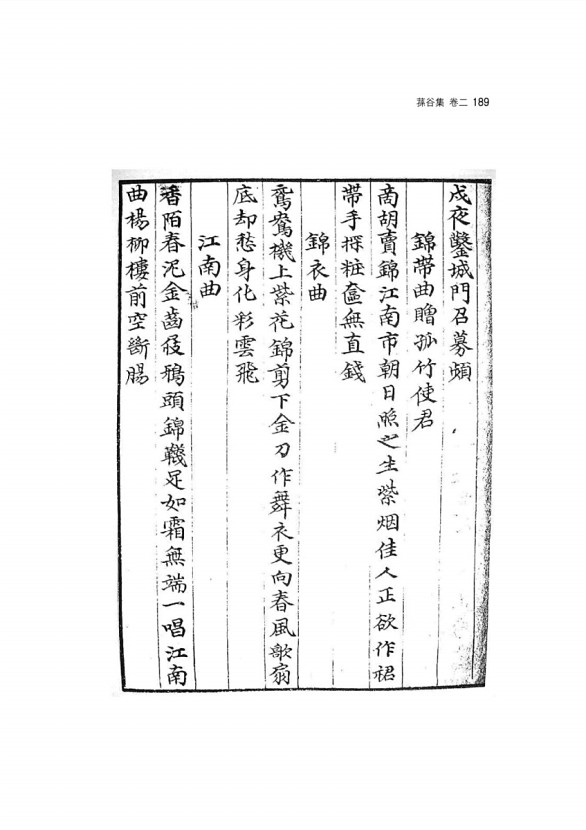 蓀谷集 卷二 189
戍夜鑿城門召募頻
錦帶曲贈孤竹使君
商胡賣錦江南市朝日照之生紫烟佳人正欲作裙
帶手探粧奩無直錢
錦衣曲
鴛鴦機上紫花錦剪下金刀作舞衣更向春風歌扇
底却愁身化彩雲飛
江南曲
香陌春泥金齒屐鴉頭錦韈足如霜無端一唱江南
曲楊柳樓前空斷膓